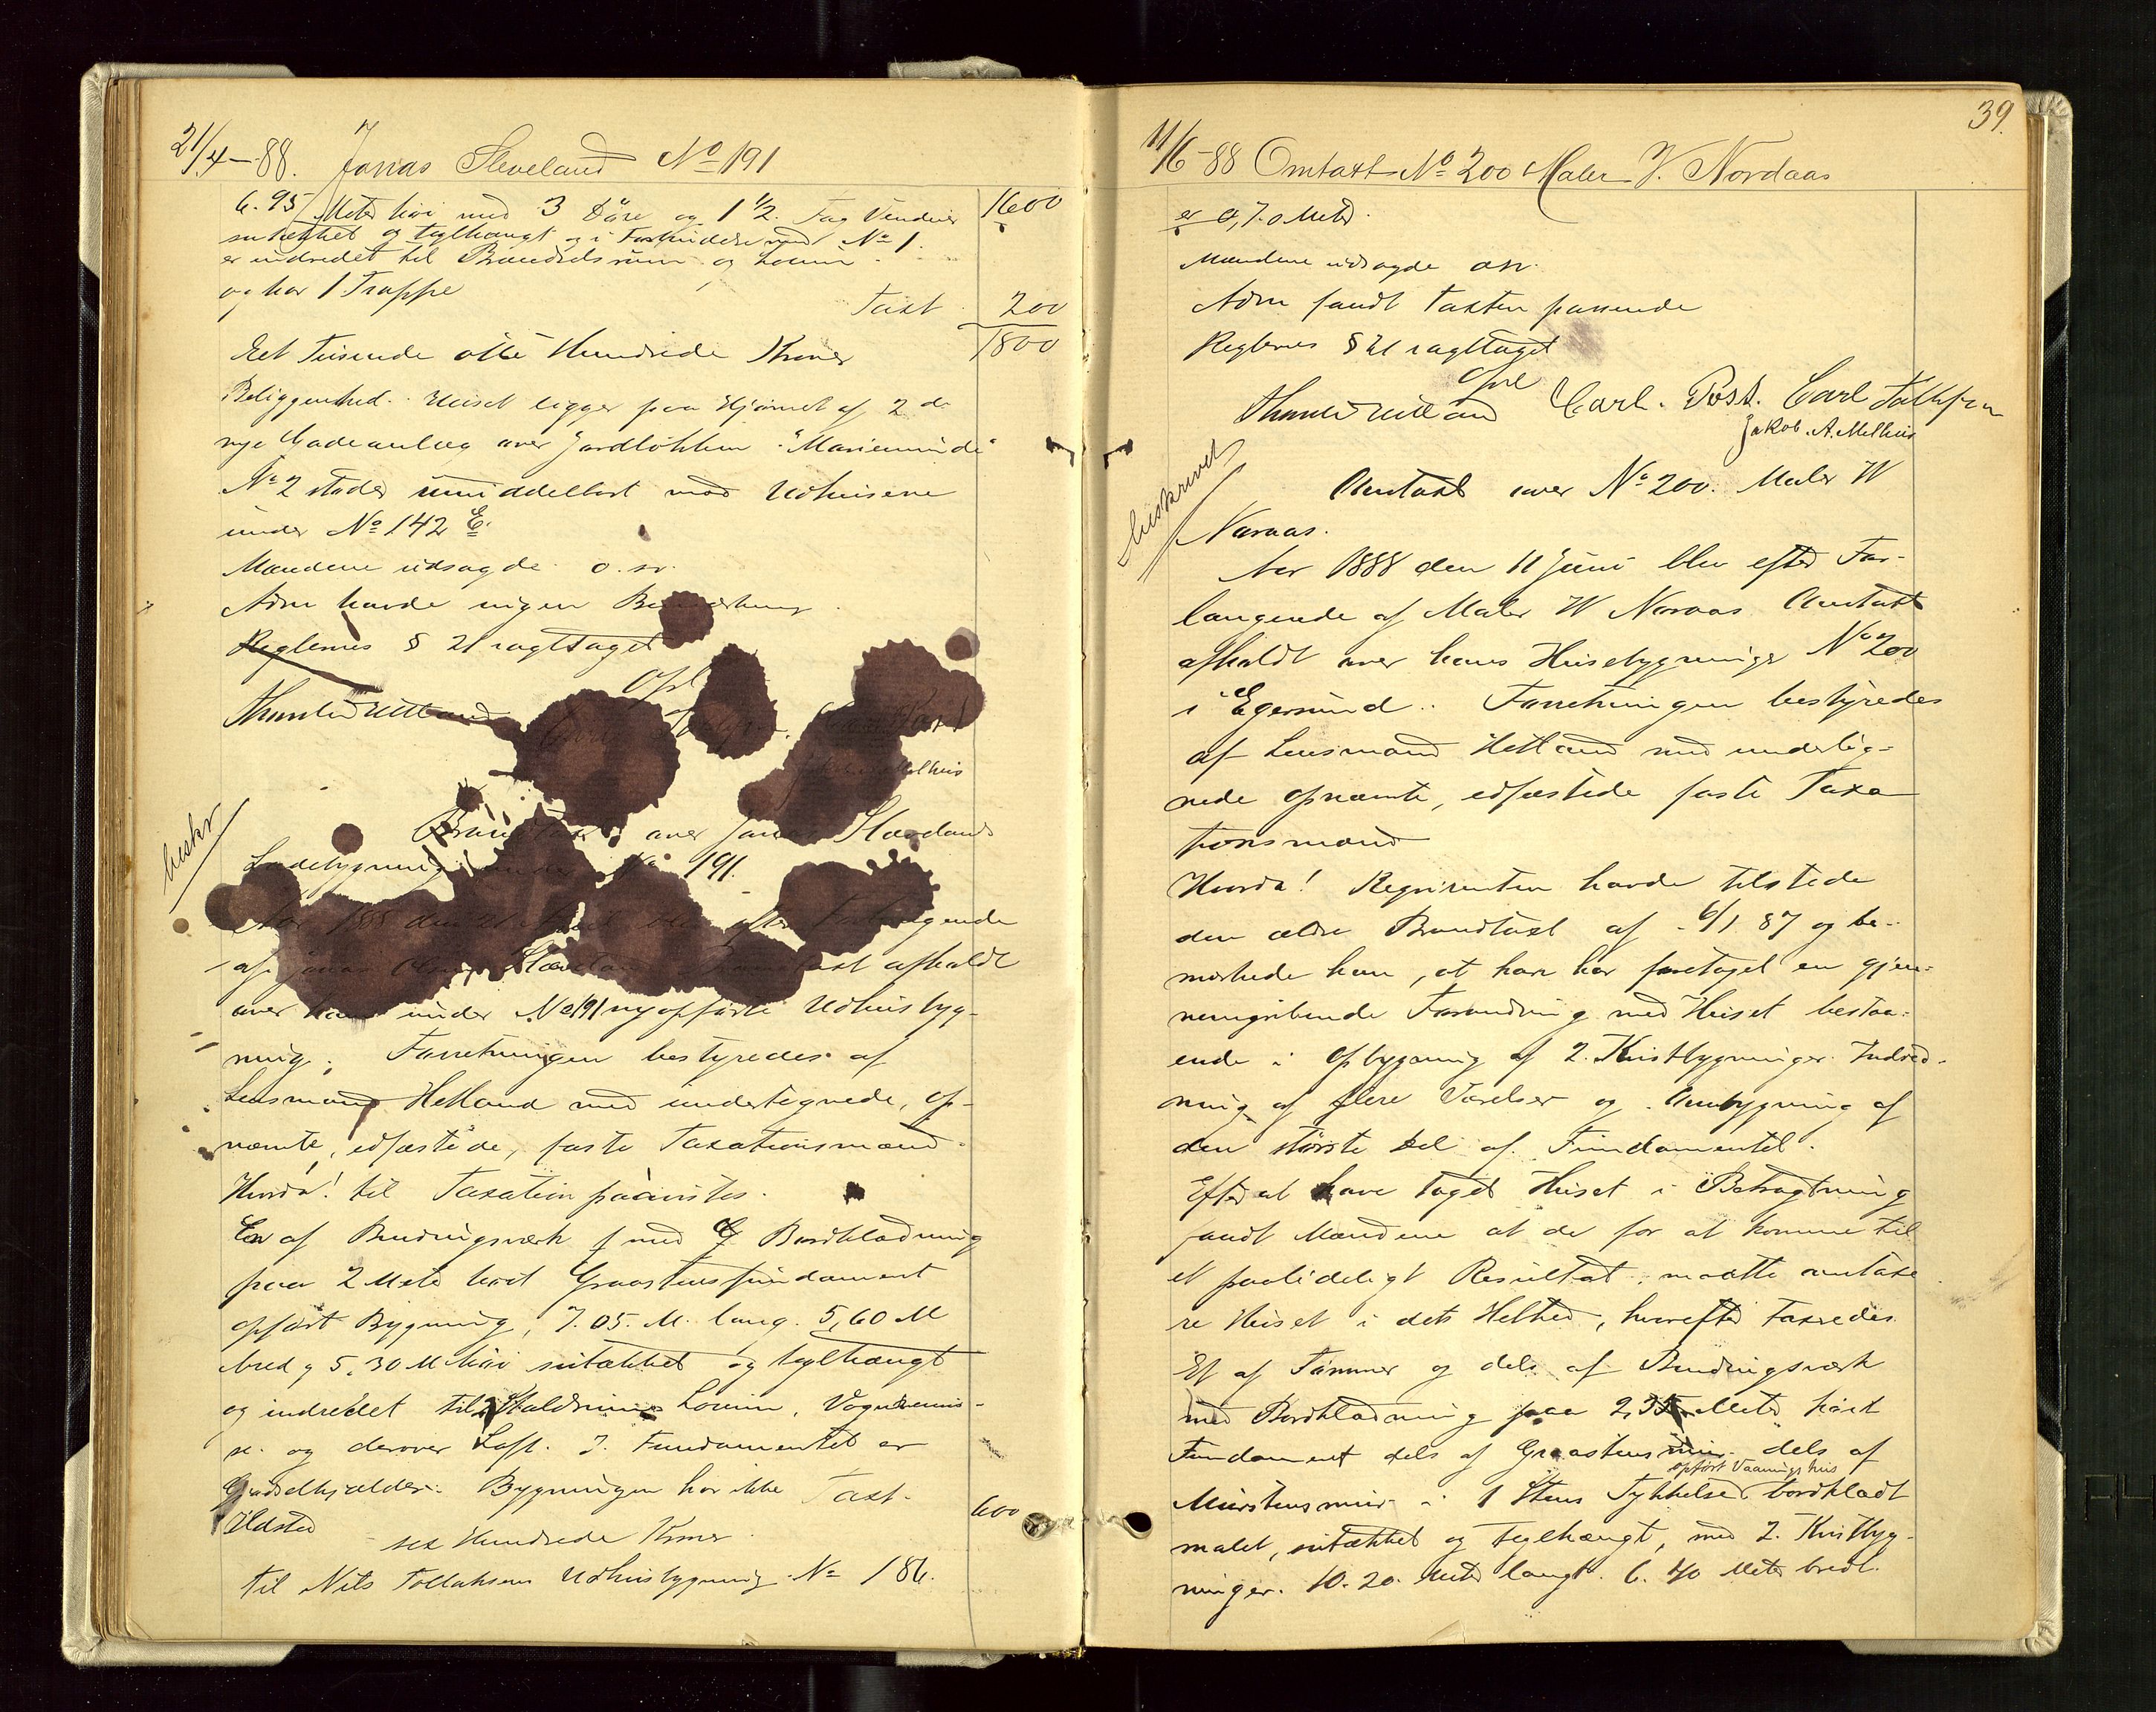 21/4 - 88. Jonas Sleveland No 191
6.95 Meter höi med 3 Döre og 1 1/2 Fag Vinduer 1600
sutækket og teglhængt og i Forbindelse med No 1.
er indredet til Brændselsrum og Locum.
og har 1 Trappe
Taxt 200
Eet Tusinde otte Hundrede Kroner 1800
Beliggenhed. Huset ligger paa Hjørnet af 2 de
nye Gadeanlæg over Jordløkken "Marieminde"
No 2 støder umiddelbart mod Udhusene
under No 142 E.
Mændene udsagde o. sv.
Adm havde ingen Bemærkning.
Reglernes § 21 iagttaget
Opl
Melhus
beskr
Brandtaxt over Jonas Slævelands
Ladebygning under No 191.
Aar 188 den 21 blev efter Forlangende
af Jonas Olsen Slæveland afholdt
over hans under No 191 nyopførte Udhusbyg-
ning. Forretningen bestyredes af
Lensmand Hetland med undertegnede, op-
nævnte, edfæstede, faste Taxationsmænd.
Hvorda! til Taxation paavistes.
En af Bindingsværk med Bordklædning
paa 2 Meter høit Graastensfundament
opført Bygning, 7.05. M. lang. 5,60 M
bred og 5,30 M høi sutækket og teglhængt
og indredet til Staldrum, Locum, Vognremis-
se. og derover Loft. I Fundamentet er
Gjødselkjælder. Bygningen har ikke Taxt. 600
Ildsted
sex Hundrede Kroner
Til Nils Tollaksens Udhusbygning No 186.
39.
11/6 - 88 Omtaxt No 200 Maler V. Nordaas
er 0,70 Meter.
Mændene udsagde osv.
Adm fandt Taxten passende
Reglernes § 21 iagttaget
Opl
Carl. Post. Carl
Jakob. A. Melhus
beskrevet
Omtaxt over No 200. Maler W
Noraas.
Aar 1888 den 11 Juni blev efter For-
langende af Maler W Noraas Omtaxt
afholdt over hans Husebygninger No 200
i Egersund. Forretningen bestyredes
af Lensmand Hetland med underteg-
nede opnævnte, edfæstede faste Taxa
tionsmænd
Hvorda! Rekvirenten havde tilstede
den ældre Brandtaxt af 6/1 87 og be-
mærkede han, at han har foretaget en gjen-
nemgribende Forandring med Huset bestaa-
ende i Opbygning af 2. Kvistbygninger. Indred-
ning af flere Værelser og Ombygning af
den største Del af Fundamentet.
Efter at have taget Huset i Betragtning
fandt Mændene at de for at komme til
et paalideligt Resultat maatte omtaxe
re Huset i dets Helhed, hvorefter taxeredes.
Et af Tømmer og dels af Bindingsværk
med Bordklædning paa 2,35 Meter høit
Fundament dels af Graastensmur dels af
opført Vaaningshus
Murstensmur i 1 Stens Tykkelse bordklædt
malet, sutækket og teglhængt, med 2. Kvistbyg-
ninger. 10.20. Meter langt. 6.40 Meter bredt.